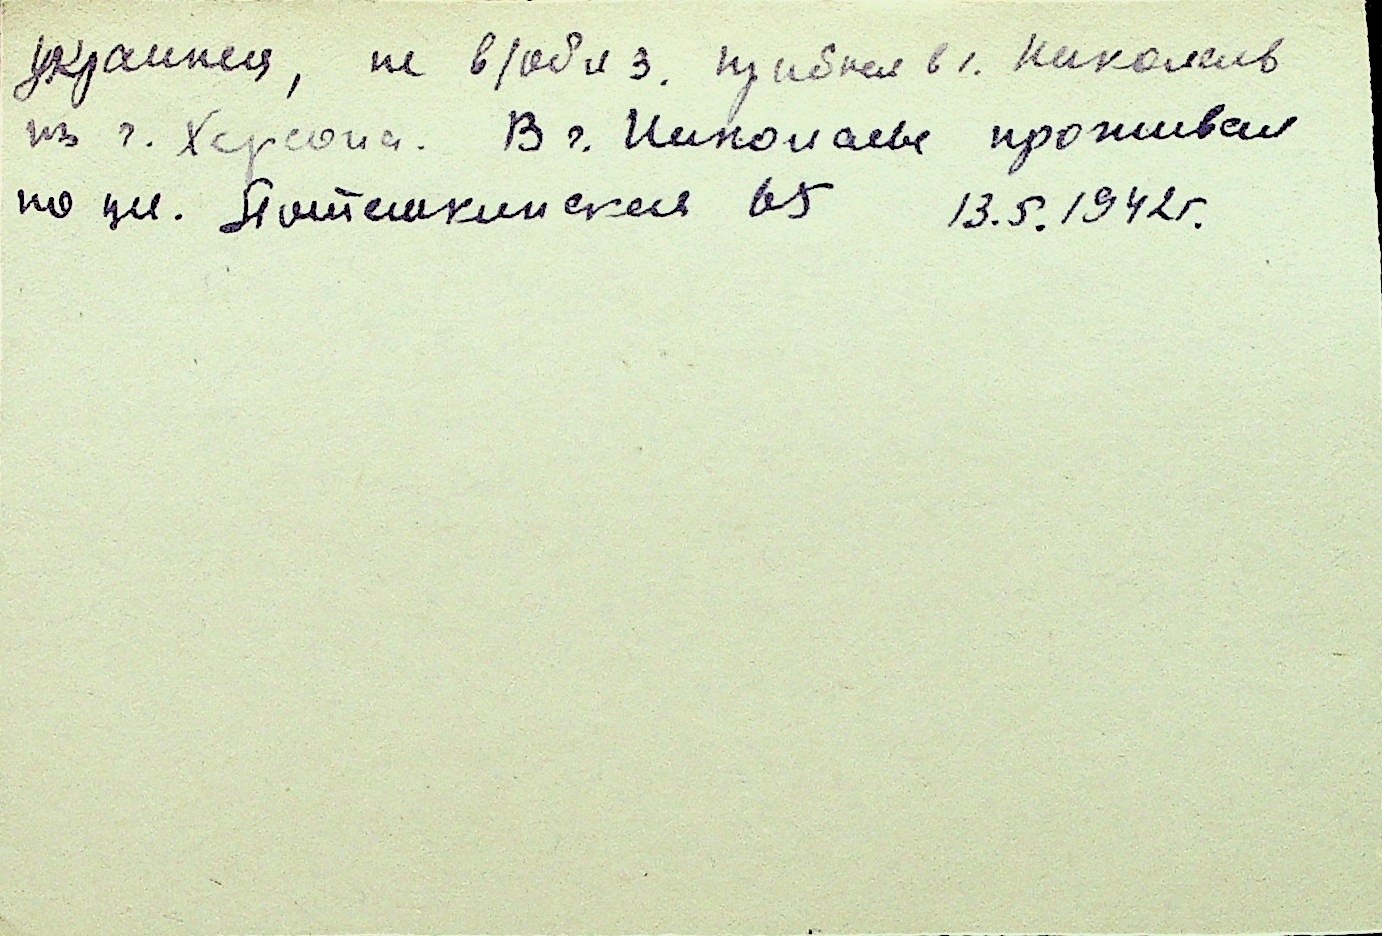 украинец, не в/обяз. прибыл в г. Николаев
из г. Херсона. В г. Николаеве проживал
по ул. Потемкинская 65 13.5.1942г.